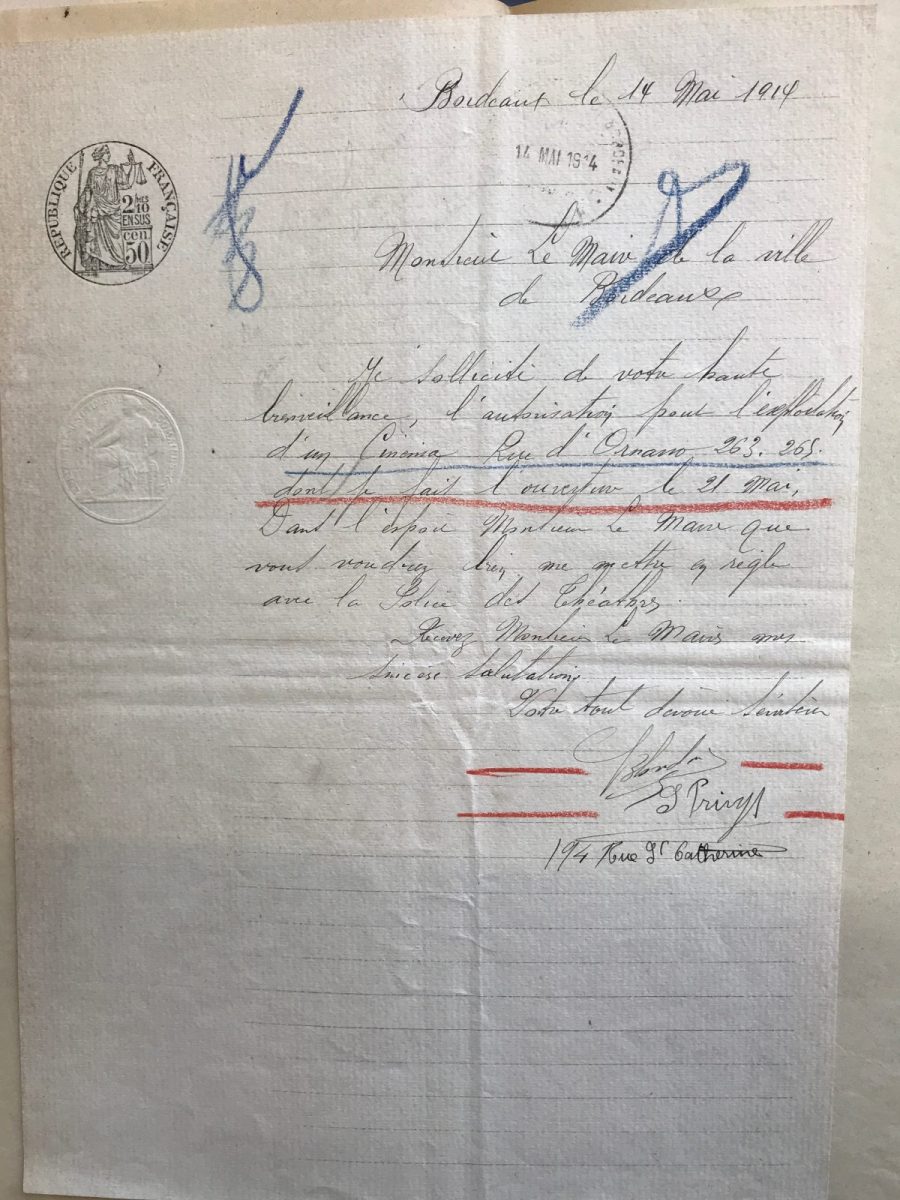 Bordeaux le 14 Mai 1914
14 MAI 1914
RÉPUBLIQUE FRANÇAISE
2/10es
EN SUS
cen
50
Monsieur Le Maire de la ville
de Bordeaux
Je sollicite de votre haute
bienveillance, l'autorisation pour l'exploitation
d'un Cinéma Rue d'Ornano 263. 265.
dont se fait l'ouverture le 21 Mai,
Dans l'espoir Monsieur Le Maire que
vous voudrez bien me mettre en règle
avec la Police des Théatres.
Recevez Monsieur Le Maire mes
sincère salutation
Votre tout dévoué Serviteur
194 Rue St Catherine